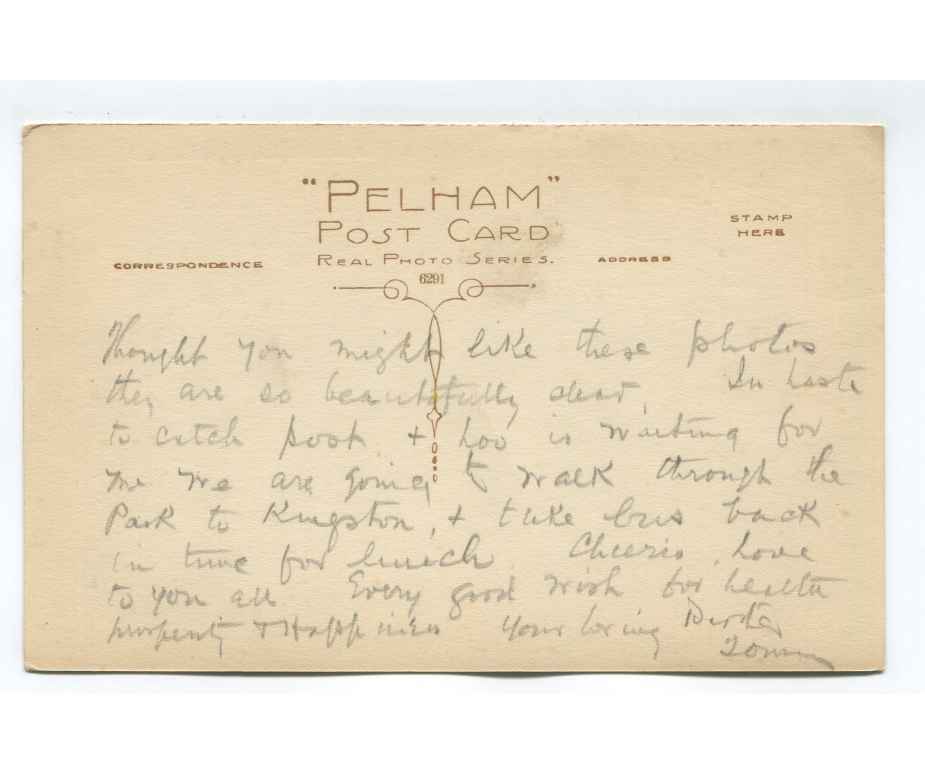 "PELHAM"
POST CARD
REAL PHOTO SERIES.
CORRESPONDENCE
ADDRESS
STAMP
HERE
6291
Thought you might like these photos
they are so beautifully clear. In haste
to catch post + is waiting for
me we are going to walk through the
Park to Kingston, + take bus back
in time for lunch. Cheerio, love
to you all Every good wish for health
prosperity + Happiness Your loving